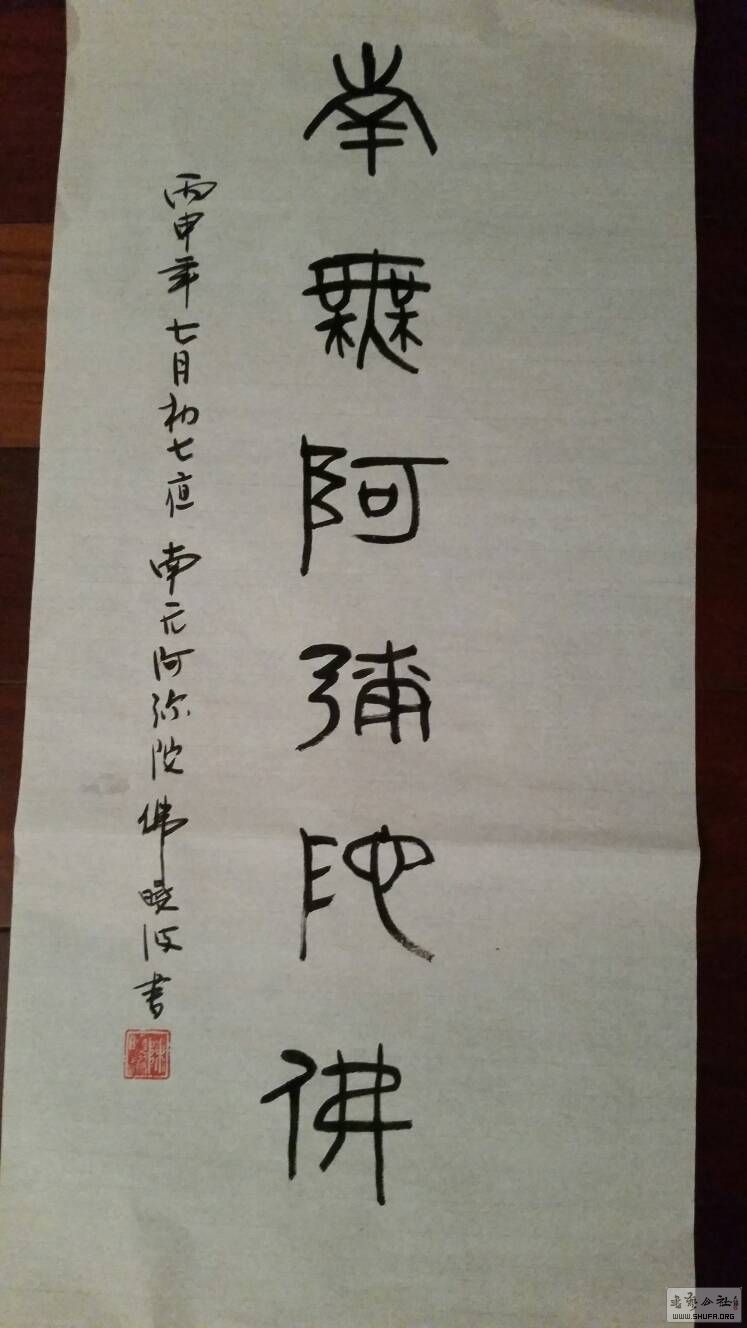 南無阿彌陀佛
丙申年七月初七夜 南无阿弥陀佛 晓波书
WWW.SHUFA.ORG